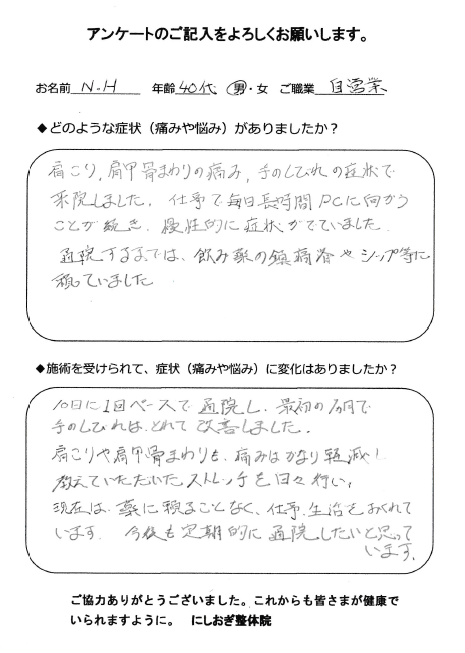 アンケートのご記入をよろしくお願いします。
お名前 N.H 年齢 40代 男・女 ご職業 自営業
◆どのような症状（痛みや悩み）がありましたか？
肩こり,肩甲骨まわりの痛み,手のしびれの症状で
来院しました. 仕事で毎日長時間PCに向かう
ことが続き, 慢性的に症状がでていました.
通院するまでは、飲み薬の鎮痛剤やシップ等に
頼っていました
◆施術を受けられて、症状（痛みや悩み）に変化はありましたか？
10日に1回ペースで通院し, 最初の1ヵ月で
手のしびれは、とれて改善しました.
肩こりや肩甲骨まわりも、痛みはかなり軽減!
教えていただいたストレッチを日々行い、
現在は、薬に頼ることなく、仕事、生活をおくれて
います. 今後も定期的に通院したいと思って
います.
ご協力ありがとうございました。これからも皆さまが健康で
いられますように。 にしおぎ整体院